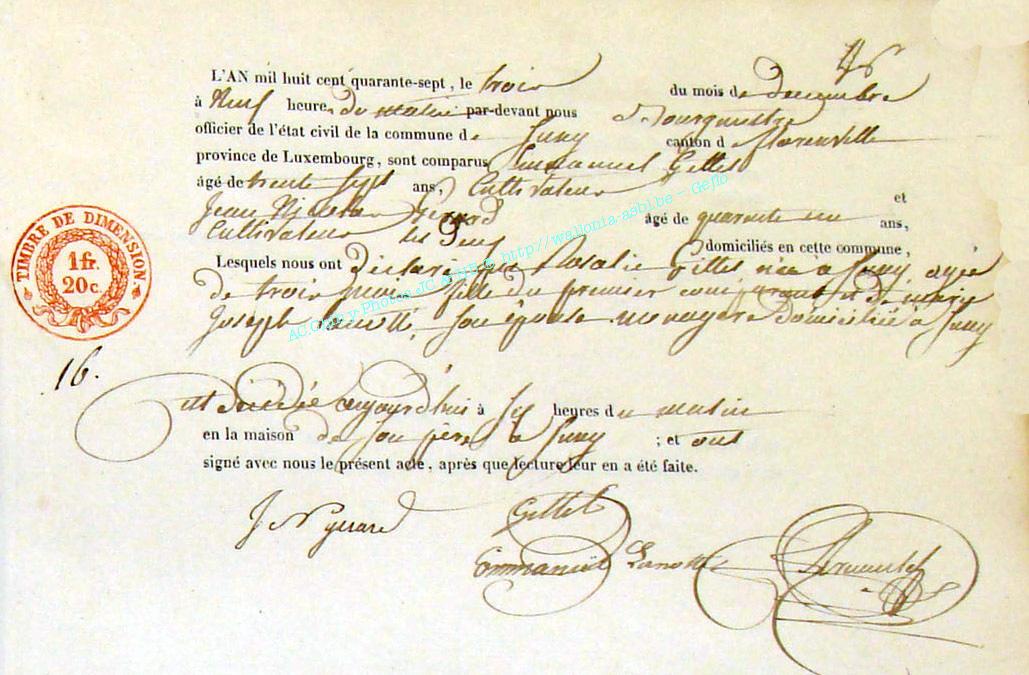 46
L'AN mil huit cent quarante-sept, le trois du mois de decembre
à Neuf heures du matin par-devant nous Bourgmestre
officier de l'état civil de la commune de Juny canton de florenville
province de Luxembourg, sont comparus Emmanuel Gillet
âgé de trente sept ans, Cultivateur et
Jean Nicolas âgé de quarante un ans,
Cultivateur domiciliés en cette commune,
Lesquels nous ont Déclaré que Rosalie Gillet née à Juny agée
de trois mois fille du premier comparant et de marie
Joseph Son épouse menagere domiciliée a Juny
TIMBRE DE DIMENSION.
1 fr.
20 c.
16.
est décédée aujourd'hui à heures du matin
en la maison de son père a Juny ; et ont
signé avec nous le présent acte, après que lecture leur en a été faite.
Gillet
Emmanuel
http://wallonia-asbl.be - Geflo